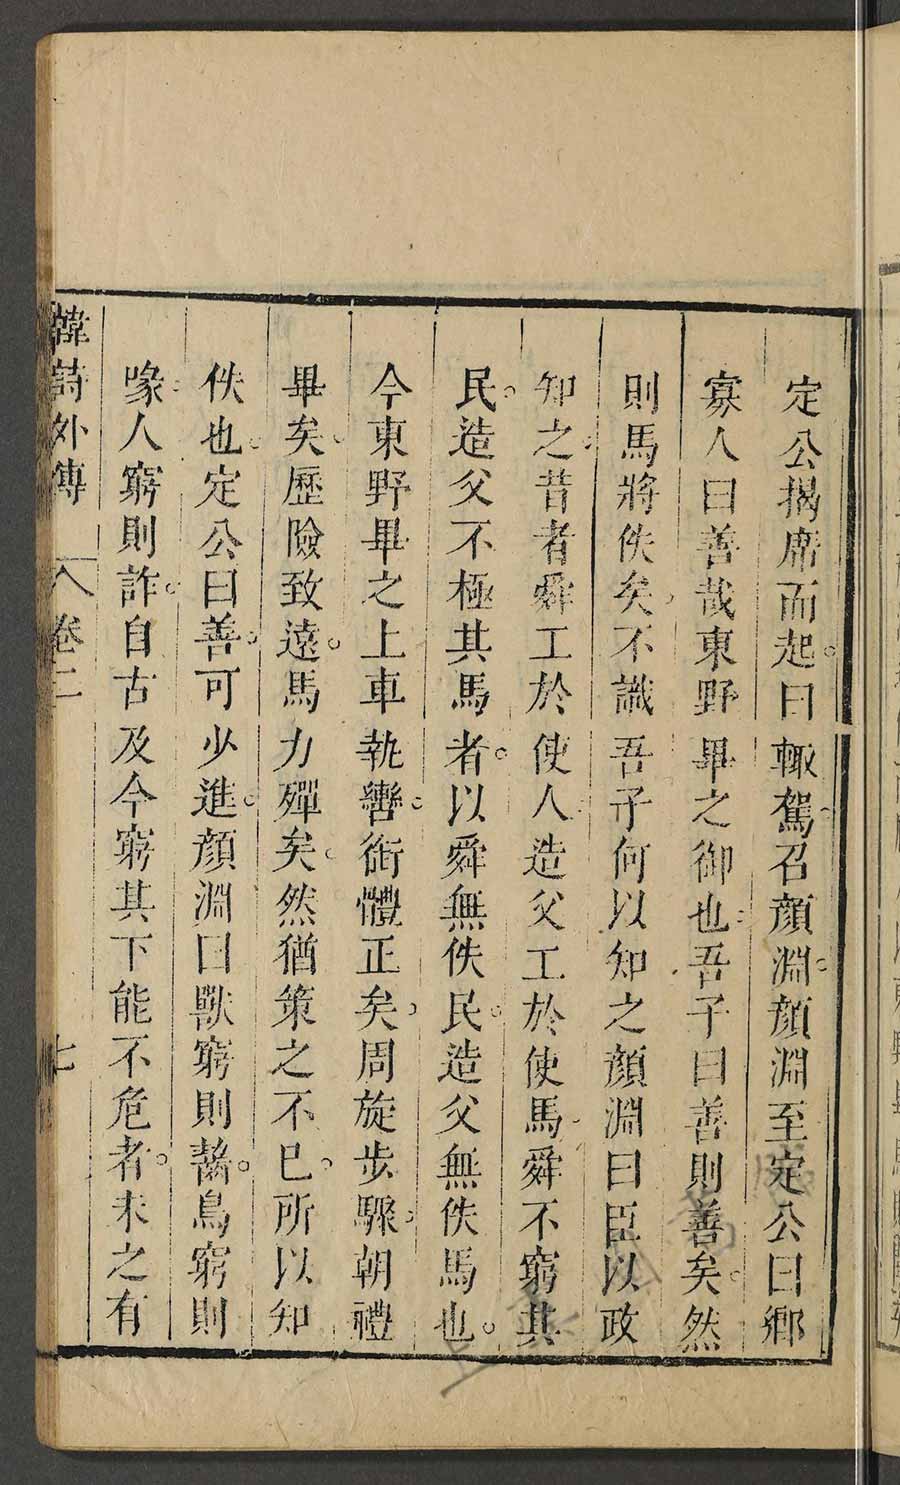 定公揭席而起曰輙駕召顔淵顔淵至定公曰鄉
寡人曰善哉東野畢之御也吾子曰善則善矣然
則馬將佚矣不識吾子何以知之顔淵曰臣以政
知之昔者舜工於使人造父工於使馬舜不窮其
民造父不極其馬者以舜無佚民造父無佚馬也
今東野畢之上車執轡銜體正矣周旋步驟朝禮
畢矣歷險致遠馬力殫矣然猶策之不已所以知
佚也定公曰善可少進顔淵曰獸窮則齧鳥窮則
喙人窮則詐自古及今窮其下能不危者未之有
韓詩外傳 卷二 七